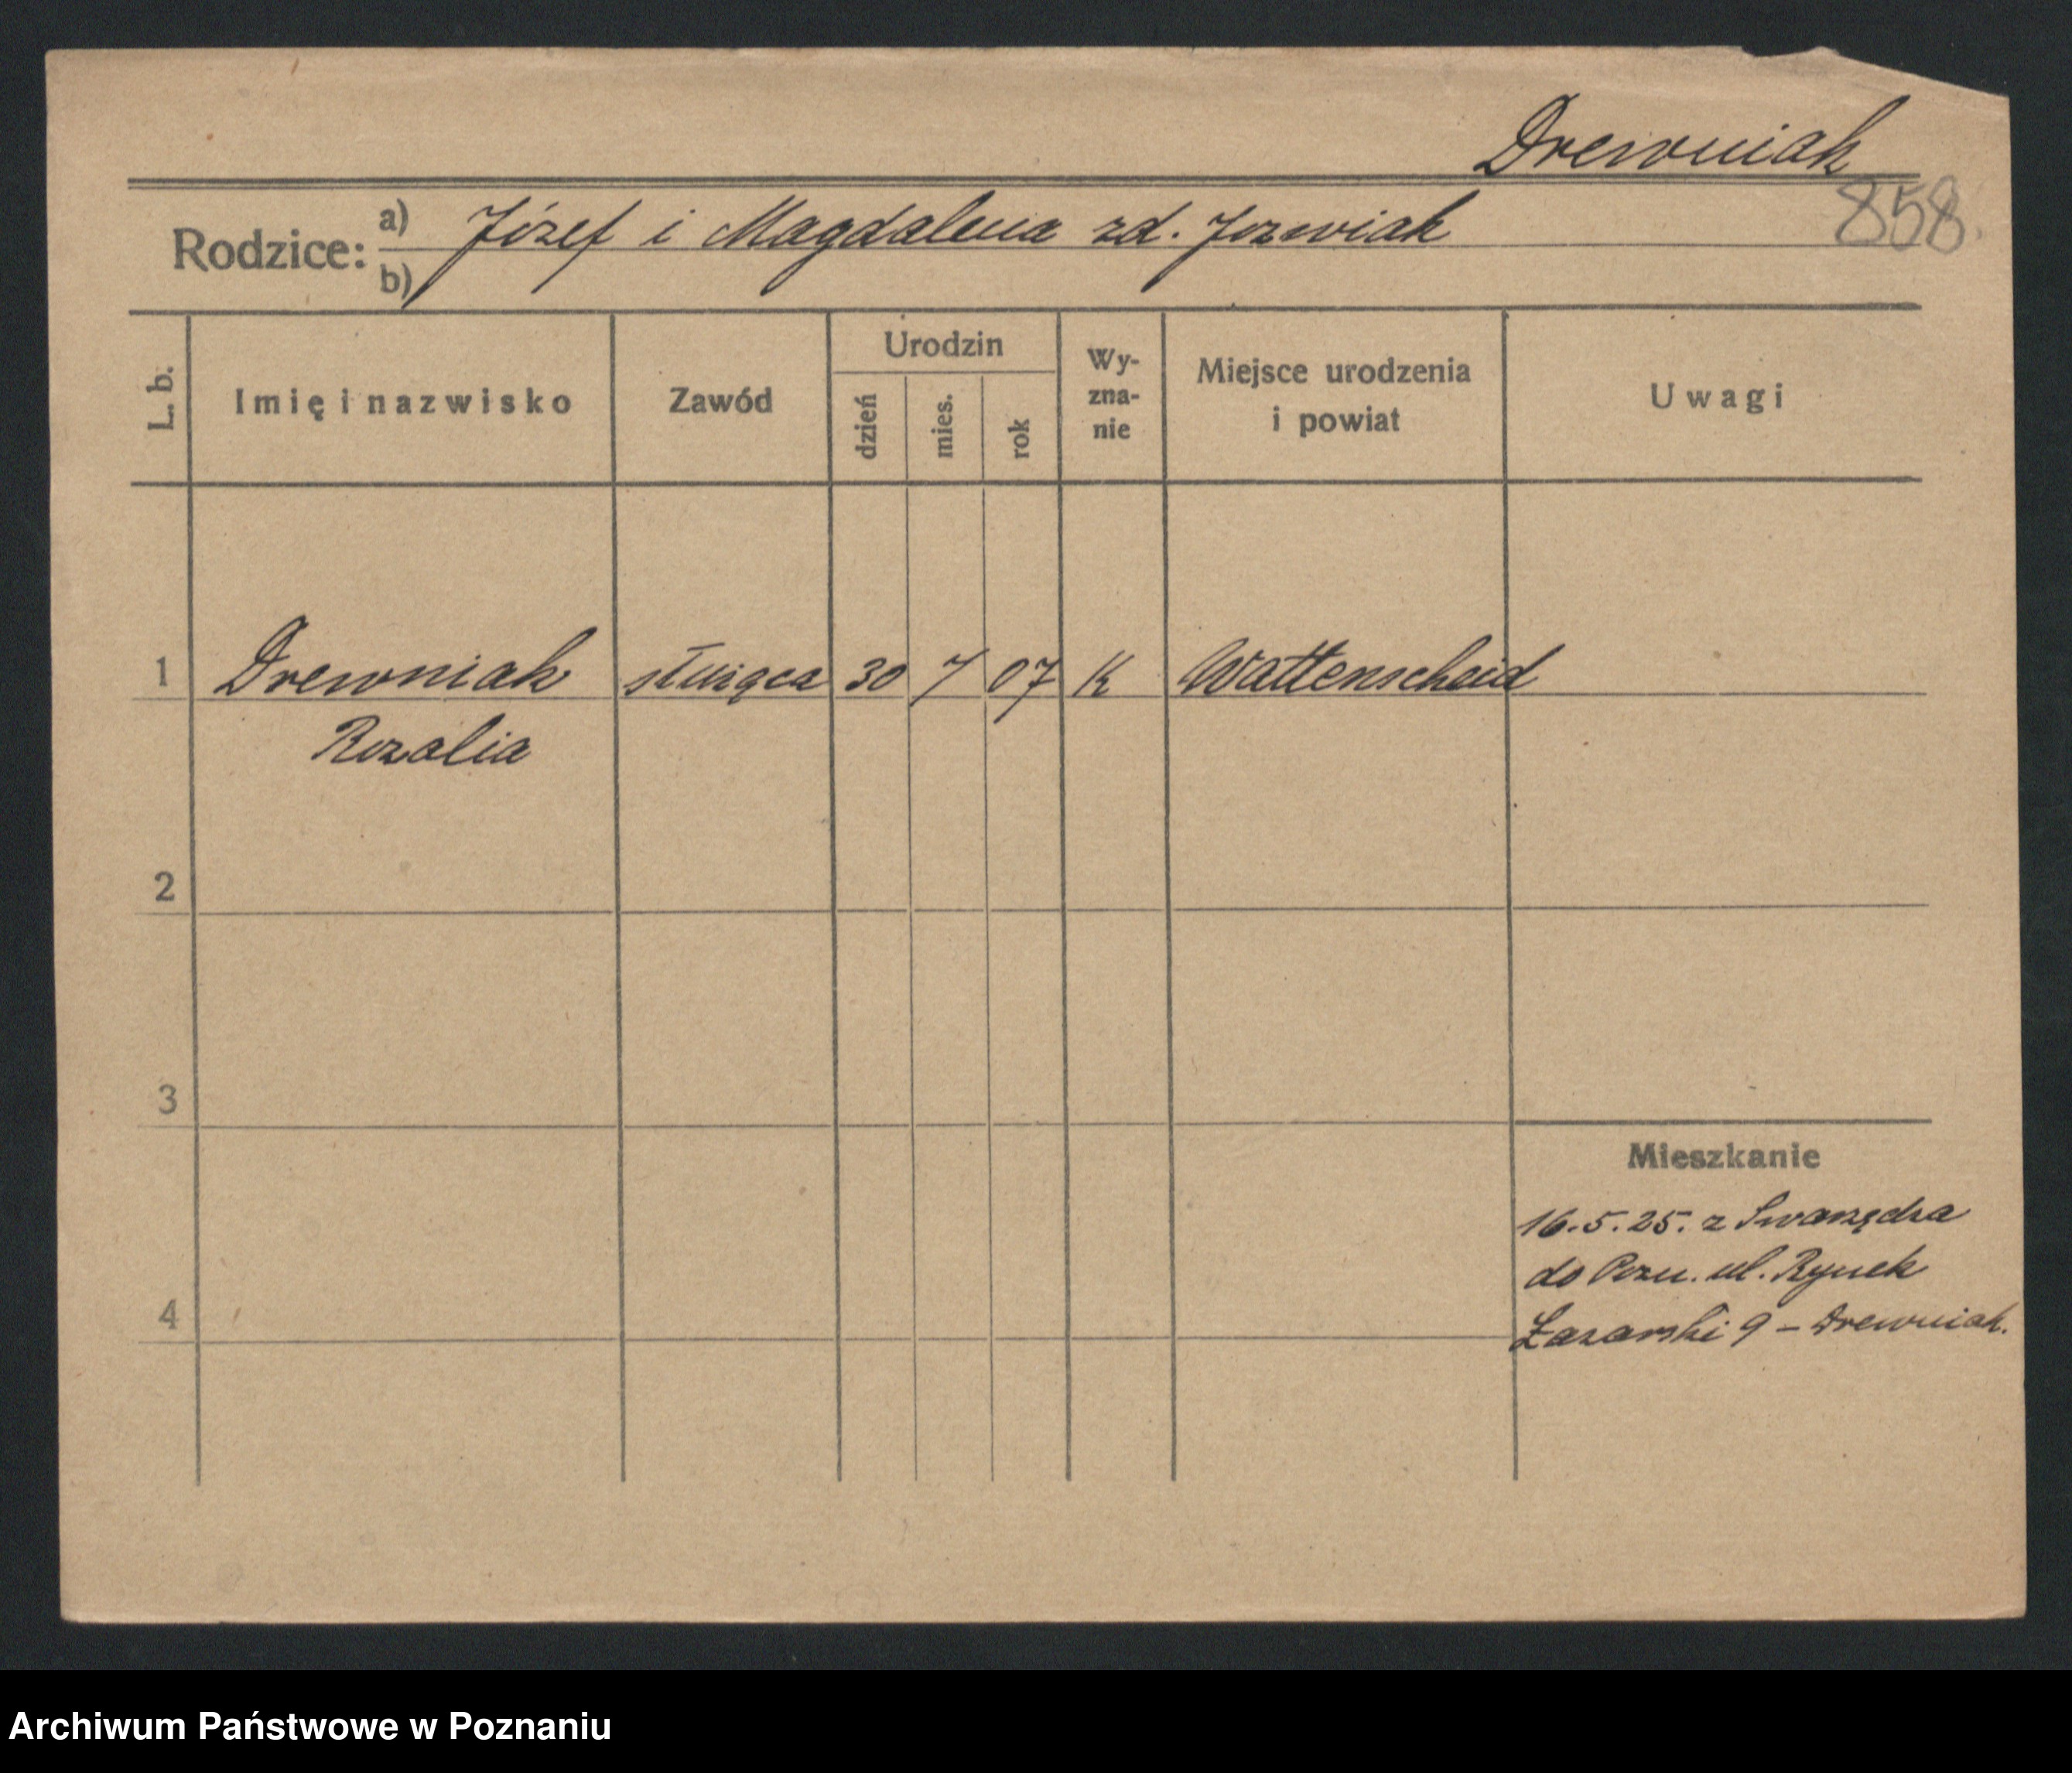 Drewniak
858.
Rodzice: a) Józef i Magdalena zd. Jozwiak
b)
L. b. Imię i nazwisko Zawód Urodzin dzień mies. rok Wy-zna-nie Miejsce urodzenia i powiat Uwagi
1 Drewniak służąca 30 7 07 K Wattenscheid
Rozalia
2
3
Mieszkanie
16.5.25. z Swarzędza
do Pozn. ul. Rynek
4 Łazarski 9 – Drewniak.
Archiwum Państwowe w Poznaniu